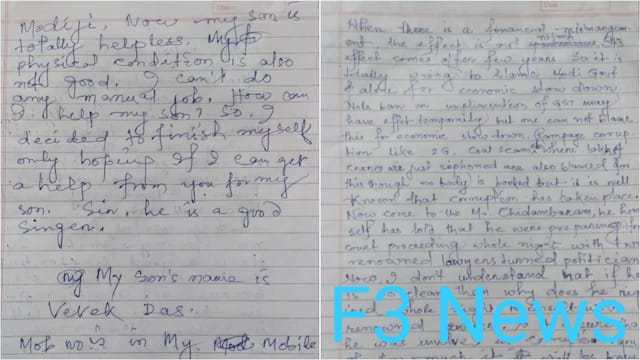 Modiji, Now my son is
totally helpless. My
physical condition is also
not good. I can't do
any manual job. How can
I help my son? So, I
decided to finish myself
only hoping If I can get
a help from you for my
son. Sir, he is a good
Singer.
My Son's name is
Vevek Das.
Mob no. is in My Mobile
When there is a financial
the effect is not
effect comes after few years. So it is
totally wrong to blame Modi Govt
alone for economic slow down.
Note ban or implementation of GST may
have effect temporarily but one can not blame
this for economic slow down. Rampage corrup-
tion like 2G, Coal scam where lakhs
crores are just siphoned are also blamed for
this though no body is booked but it is well
known that corruption has taken place.
Now come to Mr. Chidambaram, he him
self has told that he were preparing for
court proceeding whole night with
renowned lawyers turned politician
Now, I don't understand that if he
is clear then why does he
whole night
renowned
he was involve in
F3 News